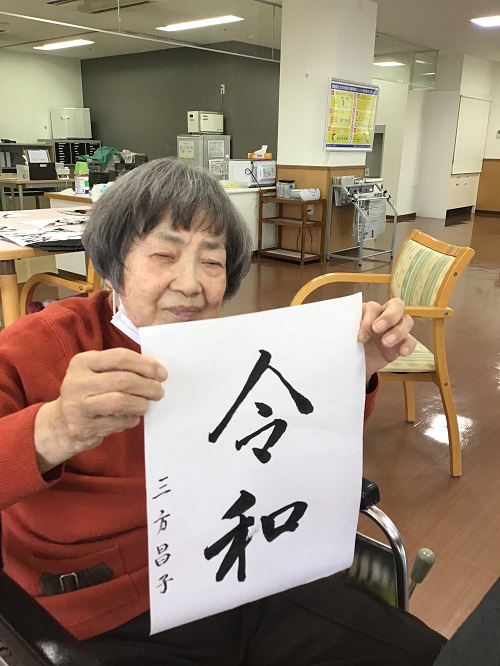 令和
三方昌子